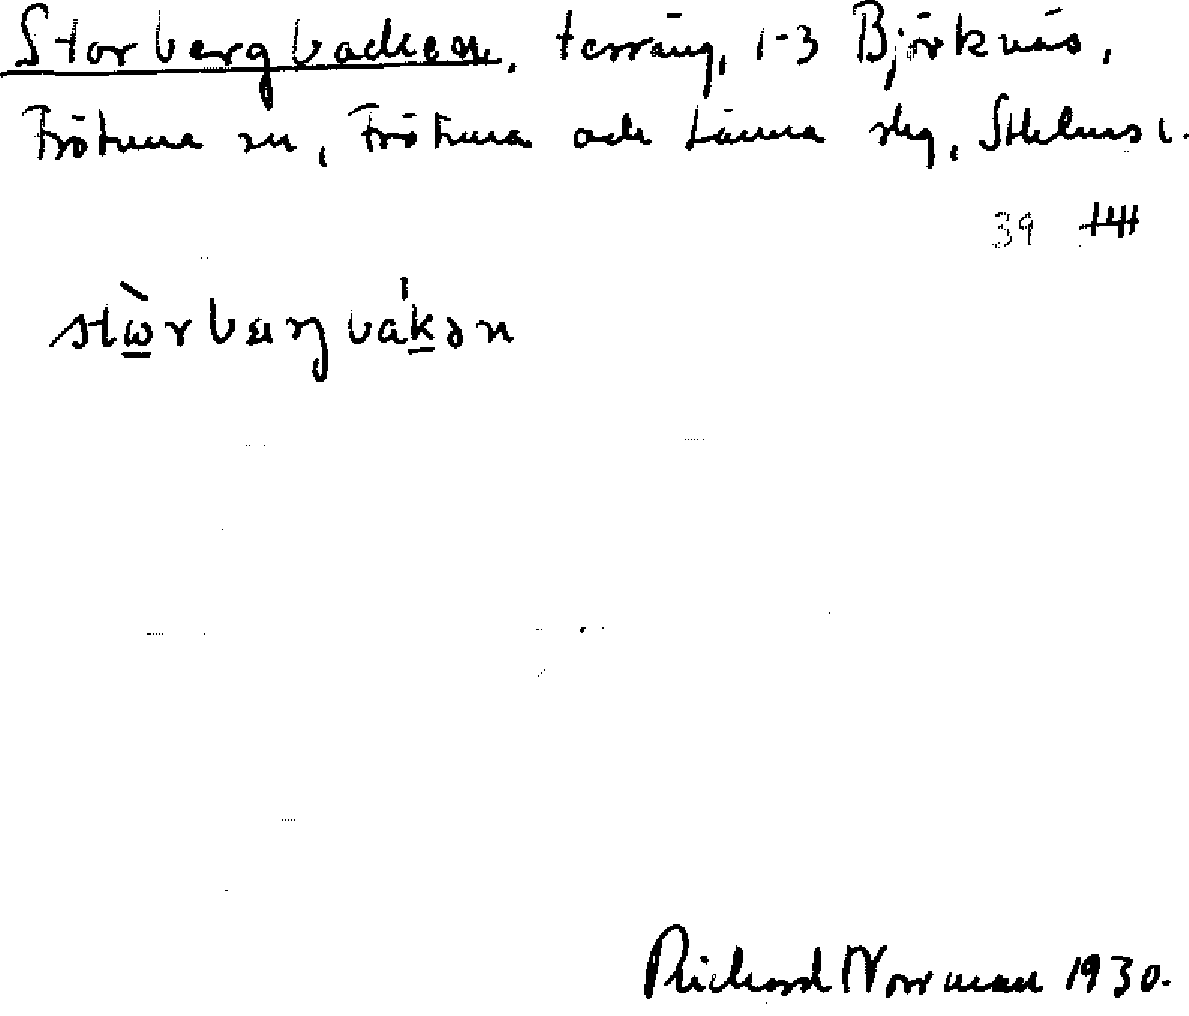 Storbergbacken, terräng, 1-3 Björknäs,
Frötuna sn, Frötuna och Länna skg, Sthlms l.
39
stòrbærgbákən
Richard Norrman 1930.